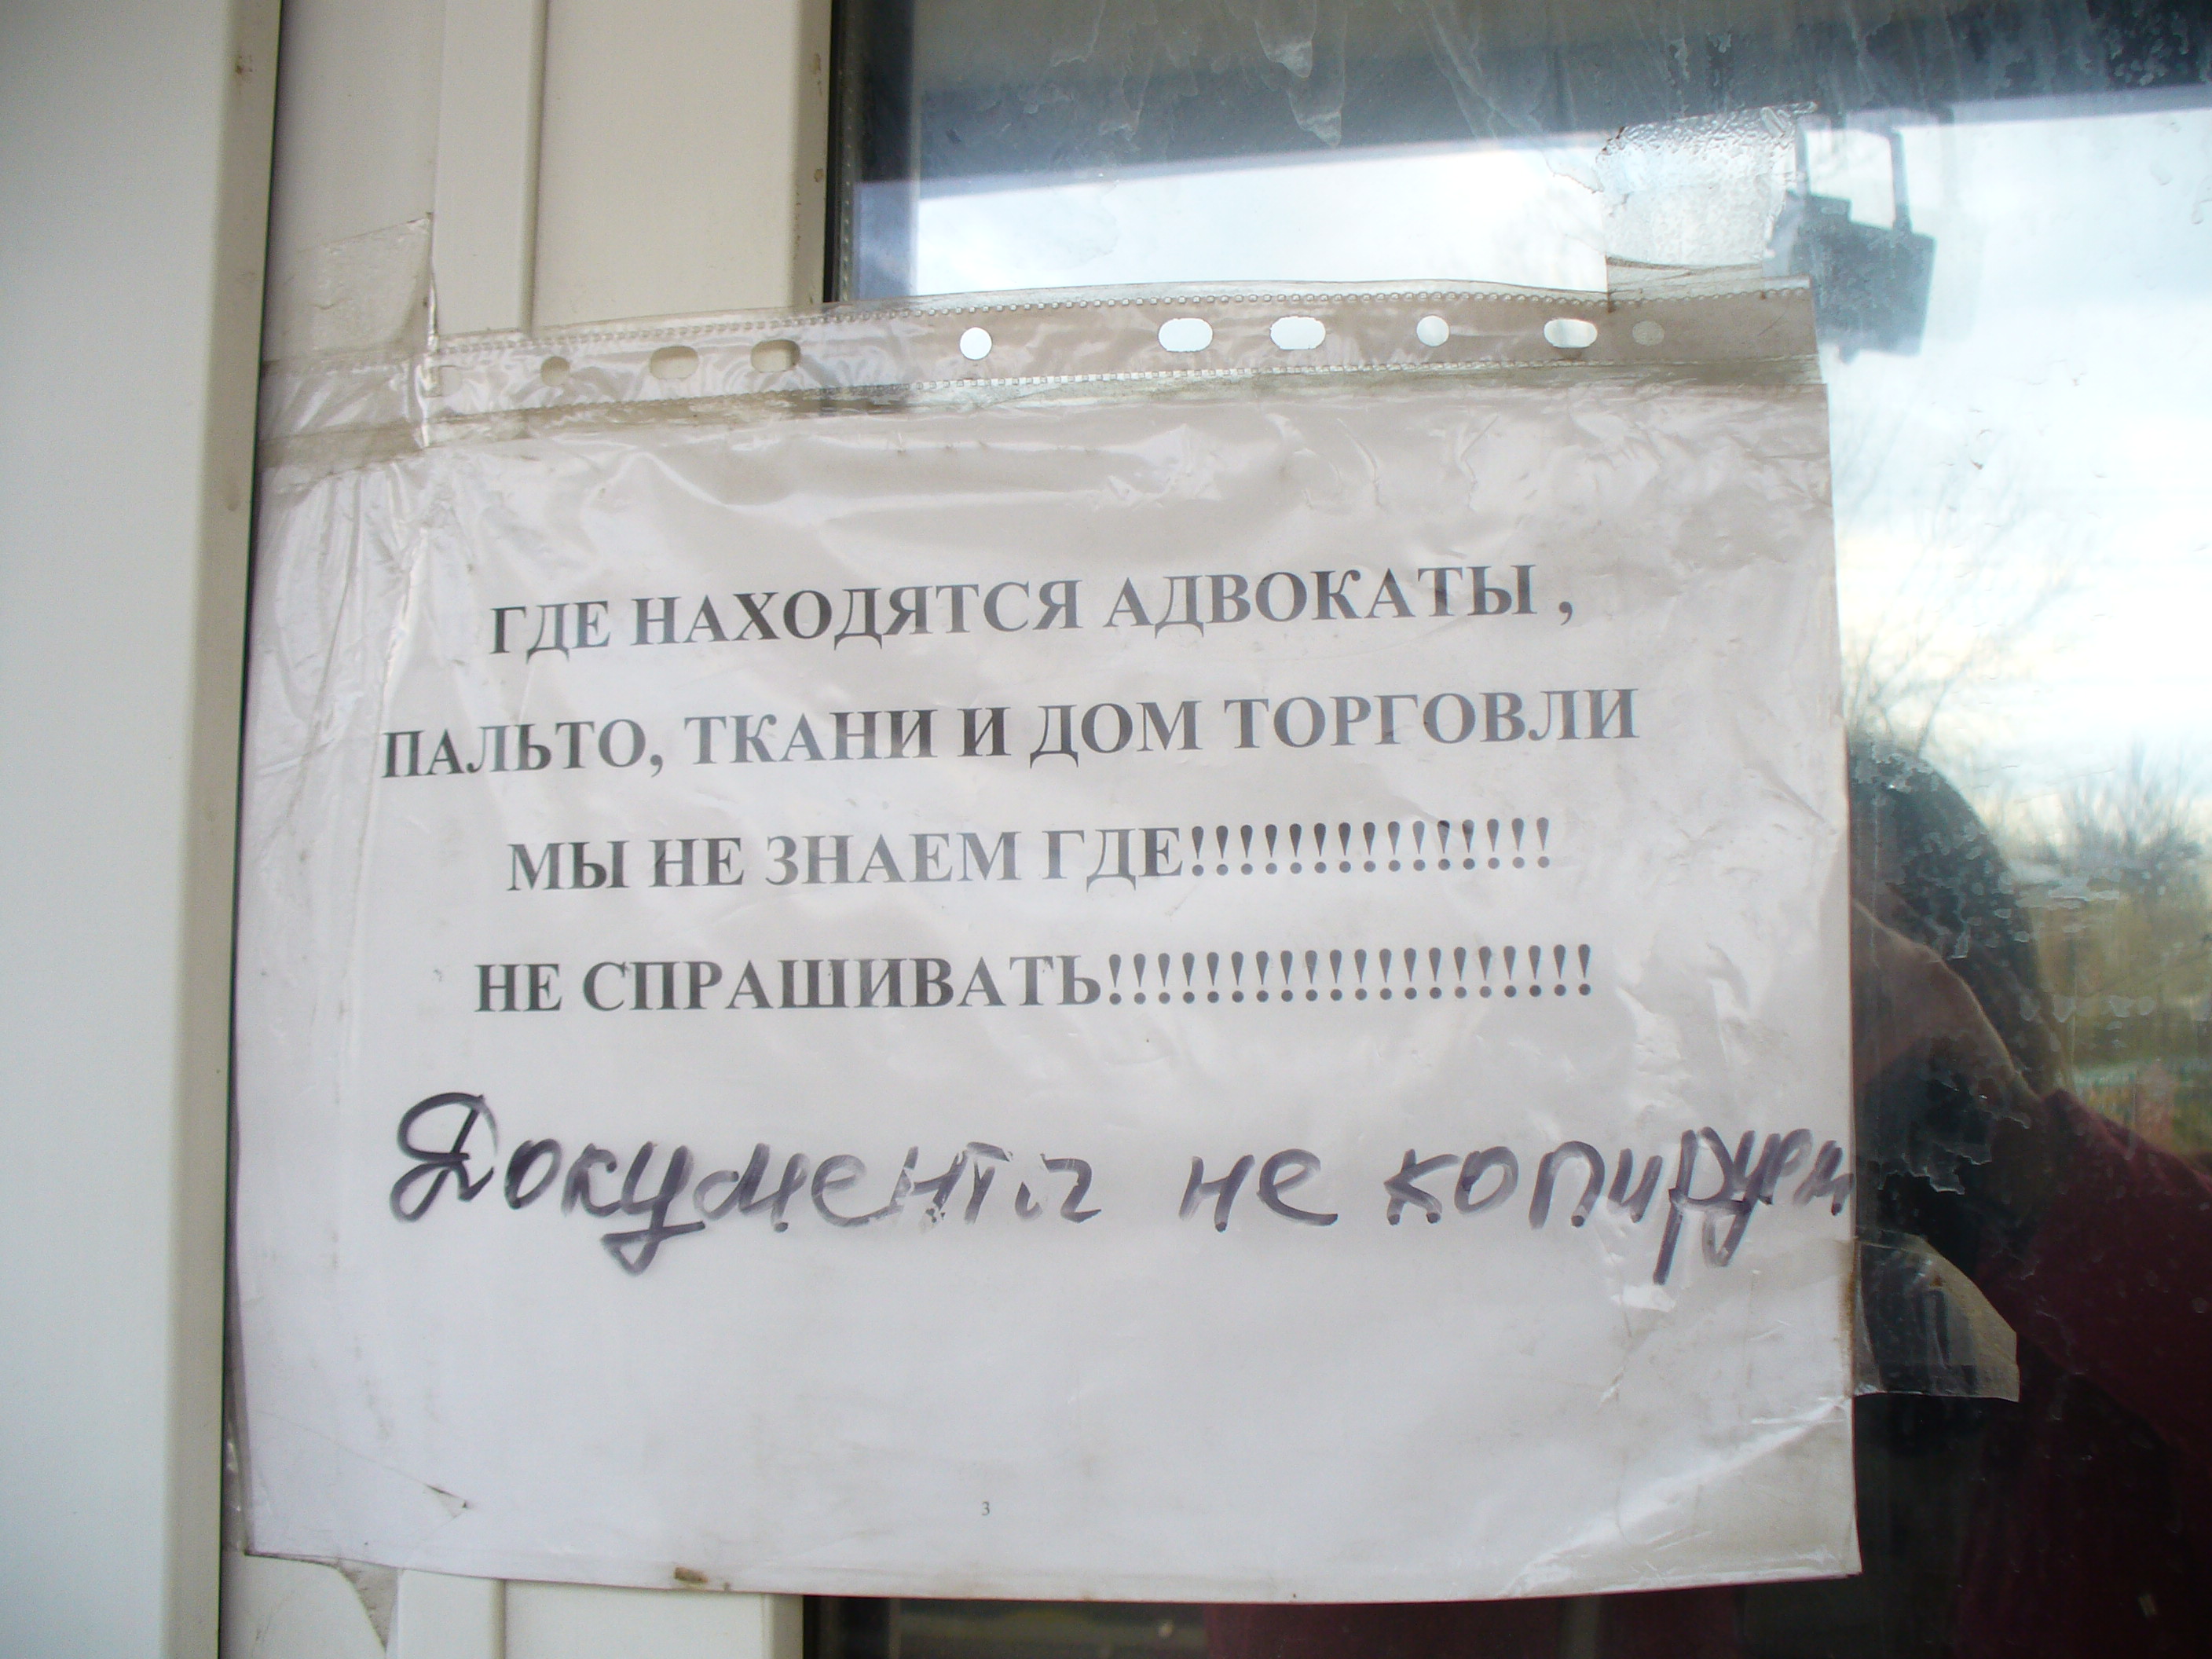 ГДЕ НАХОДЯТСЯ АДВОКАТЫ ,
ПАЛЬТО, ТКАНИ И ДОМ ТОРГОВЛИ
МЫ НЕ ЗНАЕМ ГДЕ!!!!!!!!!!!!!!!
НЕ СПРАШИВАТЬ!!!!!!!!!!!!!!!!!!!!
Документы не копируем
3